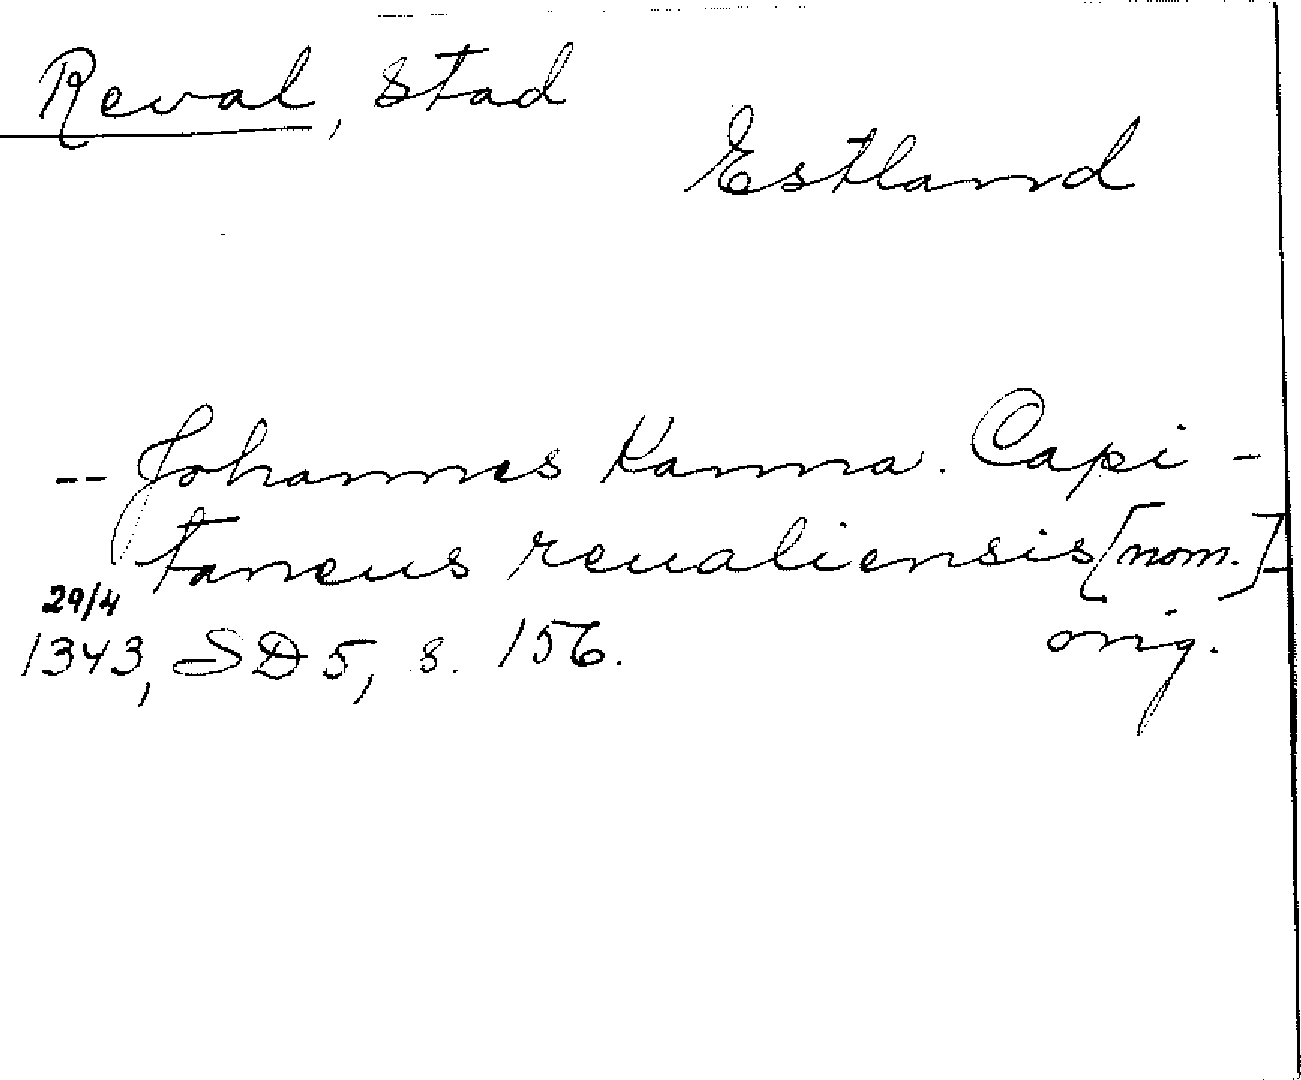 Reval, Stad
Estland
-- Johannes Kanna. Capi-
taneus reualiensis [nom.]
29/4
1343, SD 5, s. 156. orig.